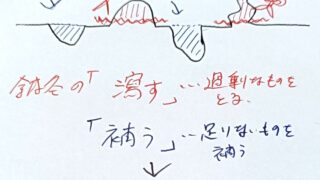 鍼灸の「瀉す」…過剰なものを
とる
「補う」…足りないものを
補う